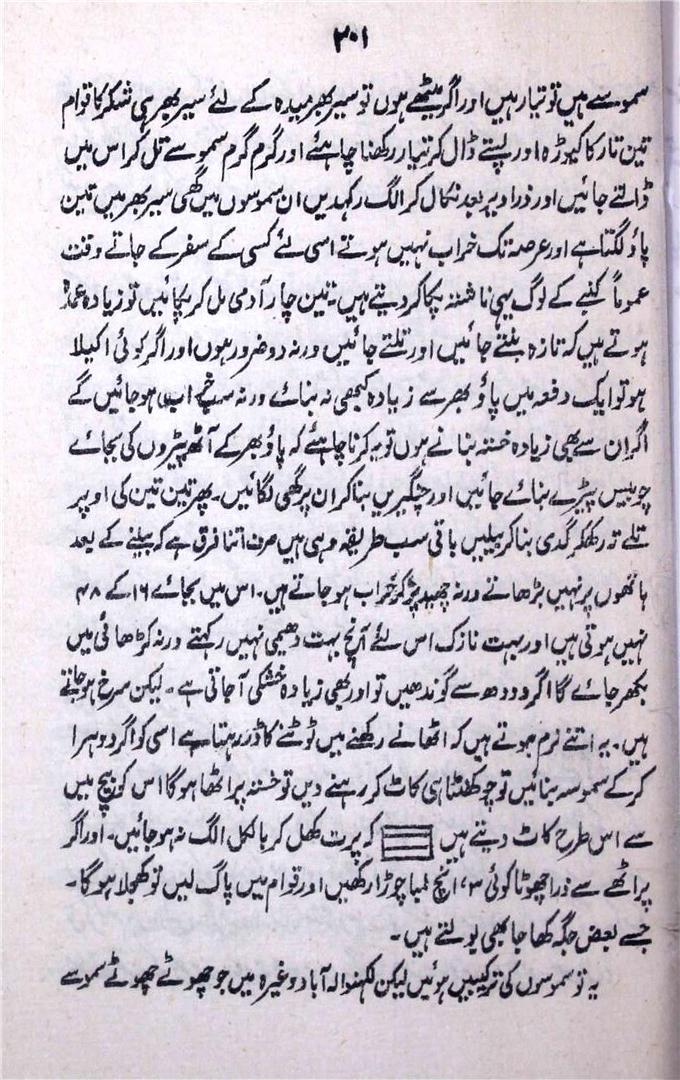 ۳۰۱
سموسے ہیں تو تیار ہیں اور اگر میٹھے ہوں تو سیر بھر میدہ کے لئے سیر بھر ہی شکر کا قوام
تین تار کا کیوڑہ اور پستے ڈال کر تیار رکھنا چاہئے اور گرم گرم سموسے تل کر اس میں
ڈالتے جائیں اور ذرا دیر بعد نکال کر الگ رکھدیں ان سموسوں میں گھی سیر بھر میں تین
پاؤ لگتا ہے اور عرصہ تک خراب نہیں ہوتے اسی لئے کسی کے سفر کے جاتے وقت
عموماً کنبے کے لوگ یہی ناشتہ پکا کر دیتے ہیں۔ تین چار آدمی مل کر پکائیں تو زیادہ عمدہ
ہوتے ہیں کہ تازہ بنتے جائیں اور تلتے جائیں ورنہ دو ضرور ہوں اور اگر کوئی اکیلا
ہو تو ایک دفعہ میں پاؤ بھر سے زیادہ کبھی نہ بنائے ورنہ سب خراب ہو جائیں گے
اگر ان سے بھی زیادہ خستہ بنانے ہوں تو یہ کرنا چاہئے کہ پاؤ بھر کے آٹھ پیڑوں کی بجائے
چوبیس پیڑے بنائے جائیں اور چنگیریں بنا کر ان پر گھی لگائیں۔ پھر تین تین کی اوپر
تلے تہ رکھکر گدی بنا کر بیلیں باقی سب طریقہ وہی ہیں صرف اتنا فرق ہے کہ بیلنے کے بعد
ہاتھوں پر نہیں بڑھاتے ورنہ چھید پڑ کر خراب ہو جاتے ہیں۔ اس میں بجائے ۱۶ کے ۴۸
تہیں ہوتی ہیں اور بہت نازک اس لئے آنچ بہت دھیمی نہیں رکھتے ورنہ کڑھائی میں
بکھر جائے گا اگر دودھ سے گوندھیں تو اور بھی زیادہ خشکی آ جاتی ہے۔ لیکن سرخ ہو جاتے
ہیں۔ یہ اتنے نرم ہوتے ہیں کہ اٹھانے رکھنے میں ٹوٹنے کا ڈر رہتا ہے اسی کو اگر دوہرا
کر کے سموسہ بنائیں تو چوکھنٹا ہی کاٹ کر رہنے دیں تو خستہ پراٹھا ہو گا اس کو بیچ میں
سے اس طرح کاٹ دیتے ہیں کہ پرت کھل کر بالکل الگ نہ ہو جائیں۔ اور اگر
پراٹھے سے ذرا چھوٹا کوئی ۳، انچ لمبا چوڑا رکھیں اور قوام میں پاگ لیں تو کھجلا ہو گا۔
جسے بعض جگہ کھاجا بھی بولتے ہیں۔
یہ تو سموسوں کی ترکیبیں ہوئیں لیکن لکھنو الہ آباد وغیرہ میں جو چھوٹے چھوٹے سموسے